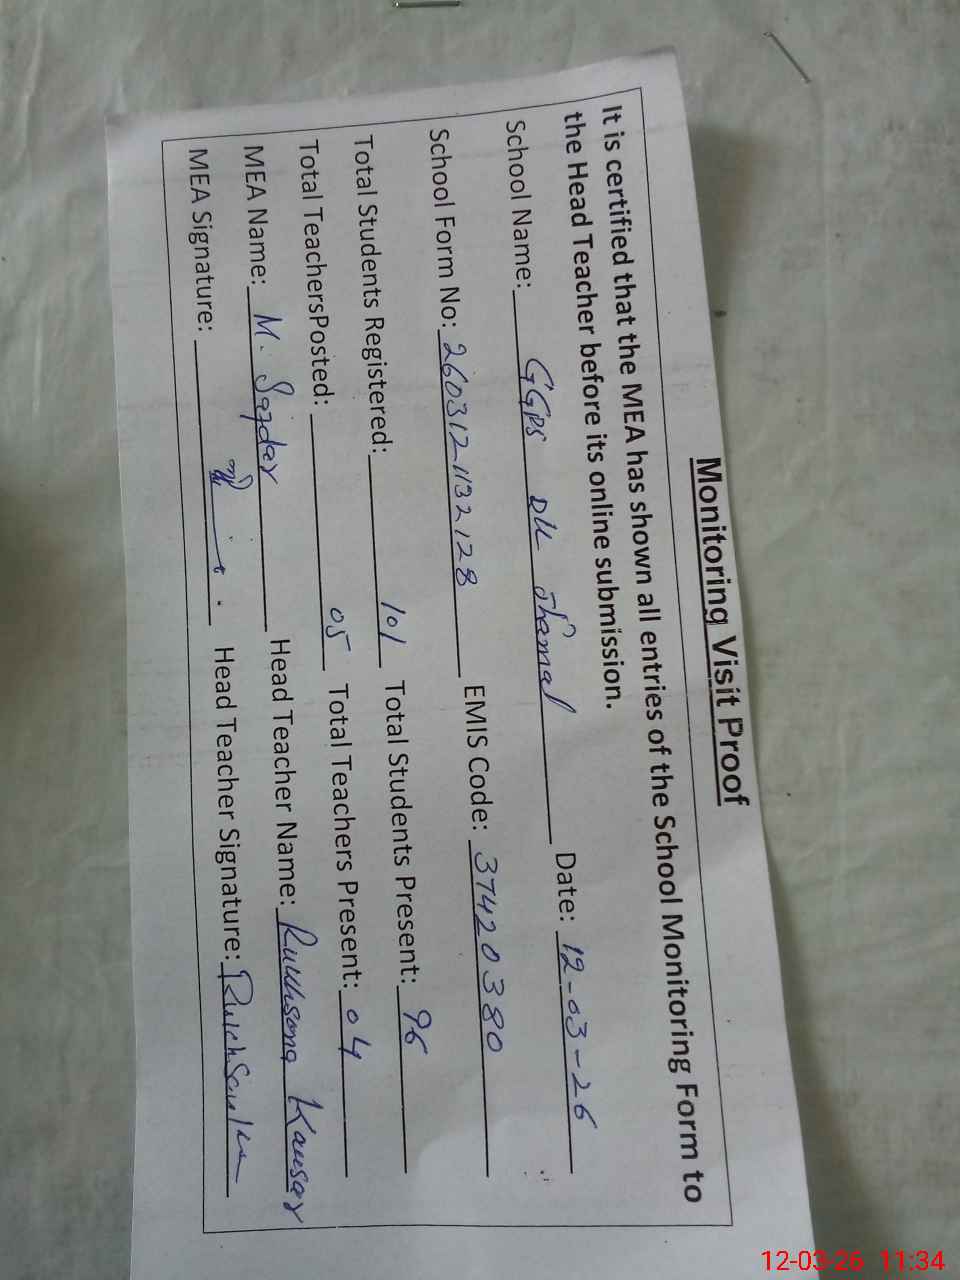 Monitoring Visit Proof
It is certified that the MEA has shown all entries of the School Monitoring Form to
the Head Teacher before its online submission.
School Name: GGPS DK Jhamal Date: 12-03-26
School Form No: 2603121132128 EMIS Code: 37420380
Total Students Registered: 101 Total Students Present: 96
Total TeachersPosted: 05 Total Teachers Present: 04
MEA Name: M. Safdar Head Teacher Name: Rukhsana Kausar
MEA Signature: Head Teacher Signature:
12-03-26 11:34